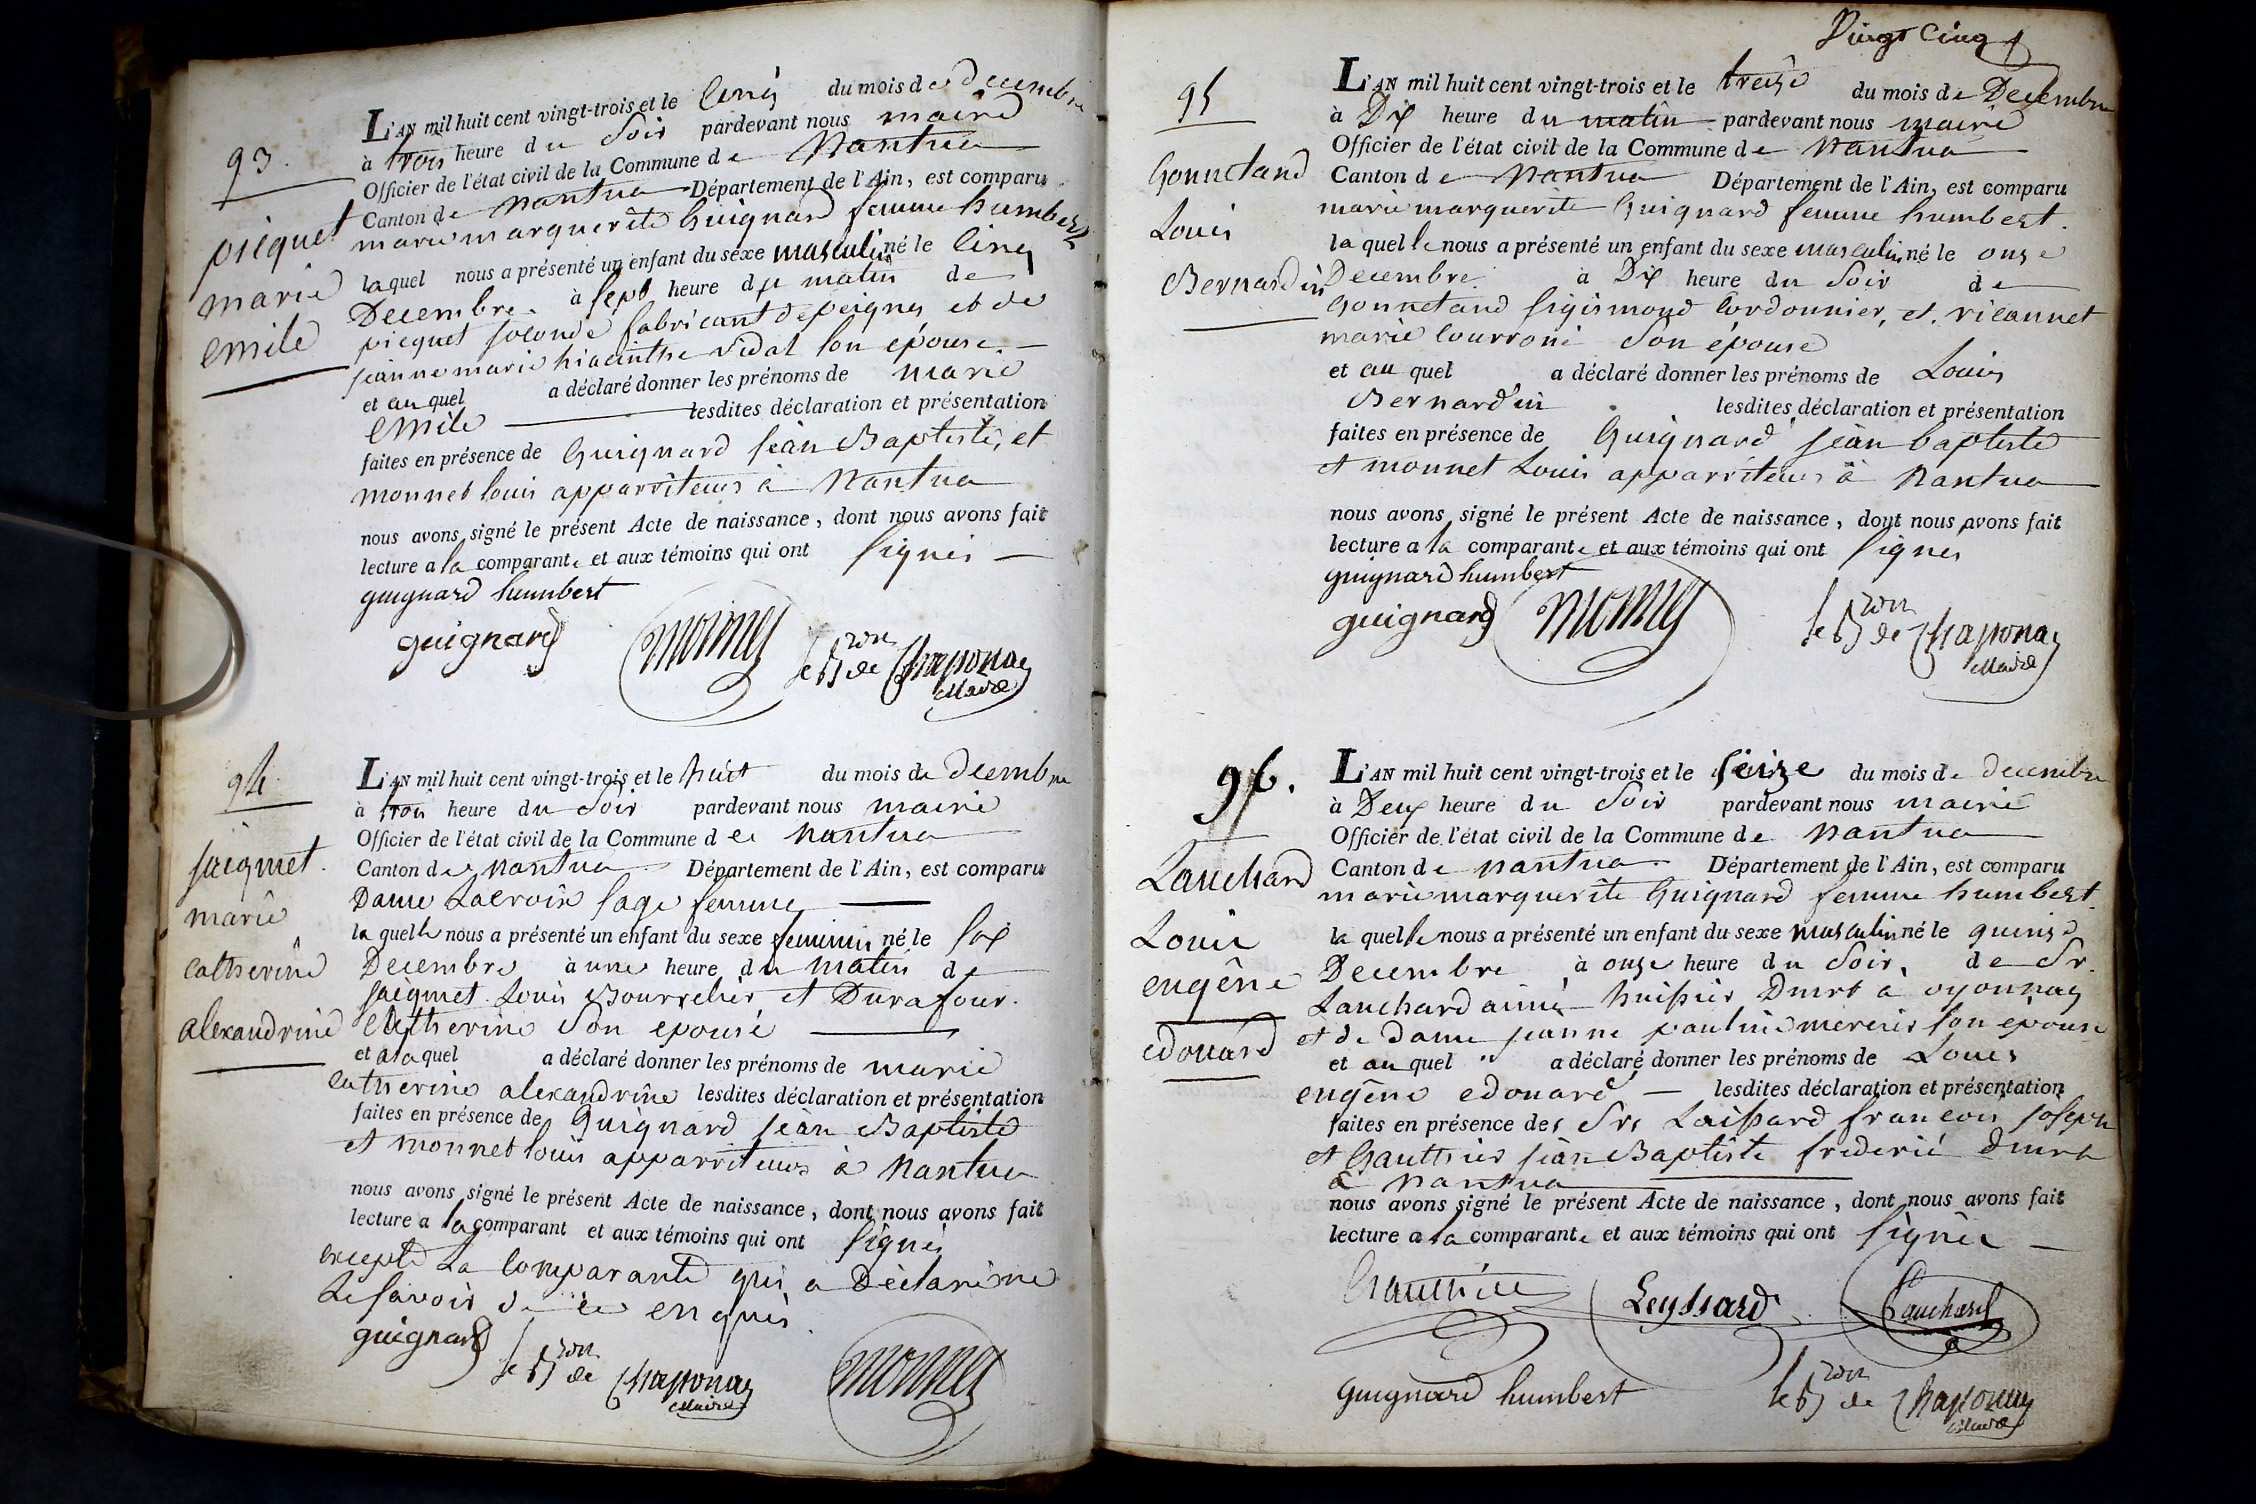 93.
picquet
marie
emile
L'AN mil huit cent vingt-trois et le cinq du mois de decembre
à trois heure du soir pardevant nous maire
Officier de l'état civil de la Commune de Nantua
Canton de nantua Département de l'Ain, est comparu
marie marguerite Guignard femme humbert
laquel nous a présenté un enfant du sexe masculin né le cinq
Decembre à sept heure du matin de
picquet joconde fabricant de peignes et de
jeanne marie hiacinthe vidal son épouse
et au quel a déclaré donner les prénoms de marie
emile lesdites déclaration et présentation
faites en présence de Guignard jean Baptiste, et
monnet louis apparriteurs à Nantua
nous avons signé le présent Acte de naissance, dont nous avons fait
lecture a la comparante et aux témoins qui ont signés
guignard humbert
guignard monnet le Bon de Chaponay
Maire
94
jaiquet.
marie
catherine
alexandrine
L'AN mil huit cent vingt-trois et le huit du mois de decembre
à trois heure du soir pardevant nous maire
Officier de l'état civil de la Commune de nantua
Canton de nantua Département de l'Ain, est comparu
Dame Lacroix sage femme
la quelle nous a présenté un enfant du sexe feminin né le six
Decembre à une heure du matin de
jaiquet Louis Bourrelier et Durafour
Catherine son epouse
et a la quel a déclaré donner les prénoms de marie
catherine alexandrine lesdites déclaration et présentation
faites en présence de Guignard jean Baptiste
et monnet louis apparriteurs à Nantua
nous avons signé le présent Acte de naissance, dont nous avons fait
lecture a la comparant et aux témoins qui ont signés
excepté La comparante qui a Déclaré ne
Le savoir de ce enquis.
guignard le Bon de Chaponay monnet
Maire
Vingt cinq
95
Gonnetand
Louis
Bernardin
L'AN mil huit cent vingt-trois et le treize du mois de Decembre
à Dix heure du matin pardevant nous maire
Officier de l'état civil de la Commune de Nantua
Canton de Nantua Département de l'Ain, est comparu
marie marguerite Guignard femme humbert.
la quelle nous a présenté un enfant du sexe masculin né le onze
Decembre à Dix heure du soir de
Gonnetand sigismond Cordonnier, et ricannet
marie courronne son épouse
et au quel a déclaré donner les prénoms de Louis
Bernardin lesdites déclaration et présentation
faites en présence de Guignard jean baptiste
et monnet Louis apparriteurs à Nantua
nous avons signé le présent Acte de naissance, dont nous avons fait
lecture a la comparante et aux témoins qui ont signés
guignard humbert
guignard monnet le Bon de Chaponay
Maire
96.
Lauchard
Louis
eugêne
edouard
L'AN mil huit cent vingt-trois et le seize du mois de decembre
à Deux heure du soir pardevant nous maire
Officier de l'état civil de la Commune de nantua
Canton de nantua Département de l'Ain, est comparu
marie marguerite Guignard femme humbert.
la quelle nous a présenté un enfant du sexe masculin né le quinze
Decembre à onze heure du soir, de Sr.
Lauchard aimé huissier Dmrt à oyonnay
et de Dame jeanne pauline mercier son epouse
et au quel a déclaré donner les prénoms de Louis
eugêne edouard lesdites déclaration et présentation
faites en présence des Srs Laissard francois joseph
et Gauthier jean Baptiste frederic dmrt
à nantua
nous avons signé le présent Acte de naissance, dont nous avons fait
lecture a la comparante et aux témoins qui ont signés
Gauthier Leyssard Lauchard
guignard humbert le Bon de Chaponay
Maire